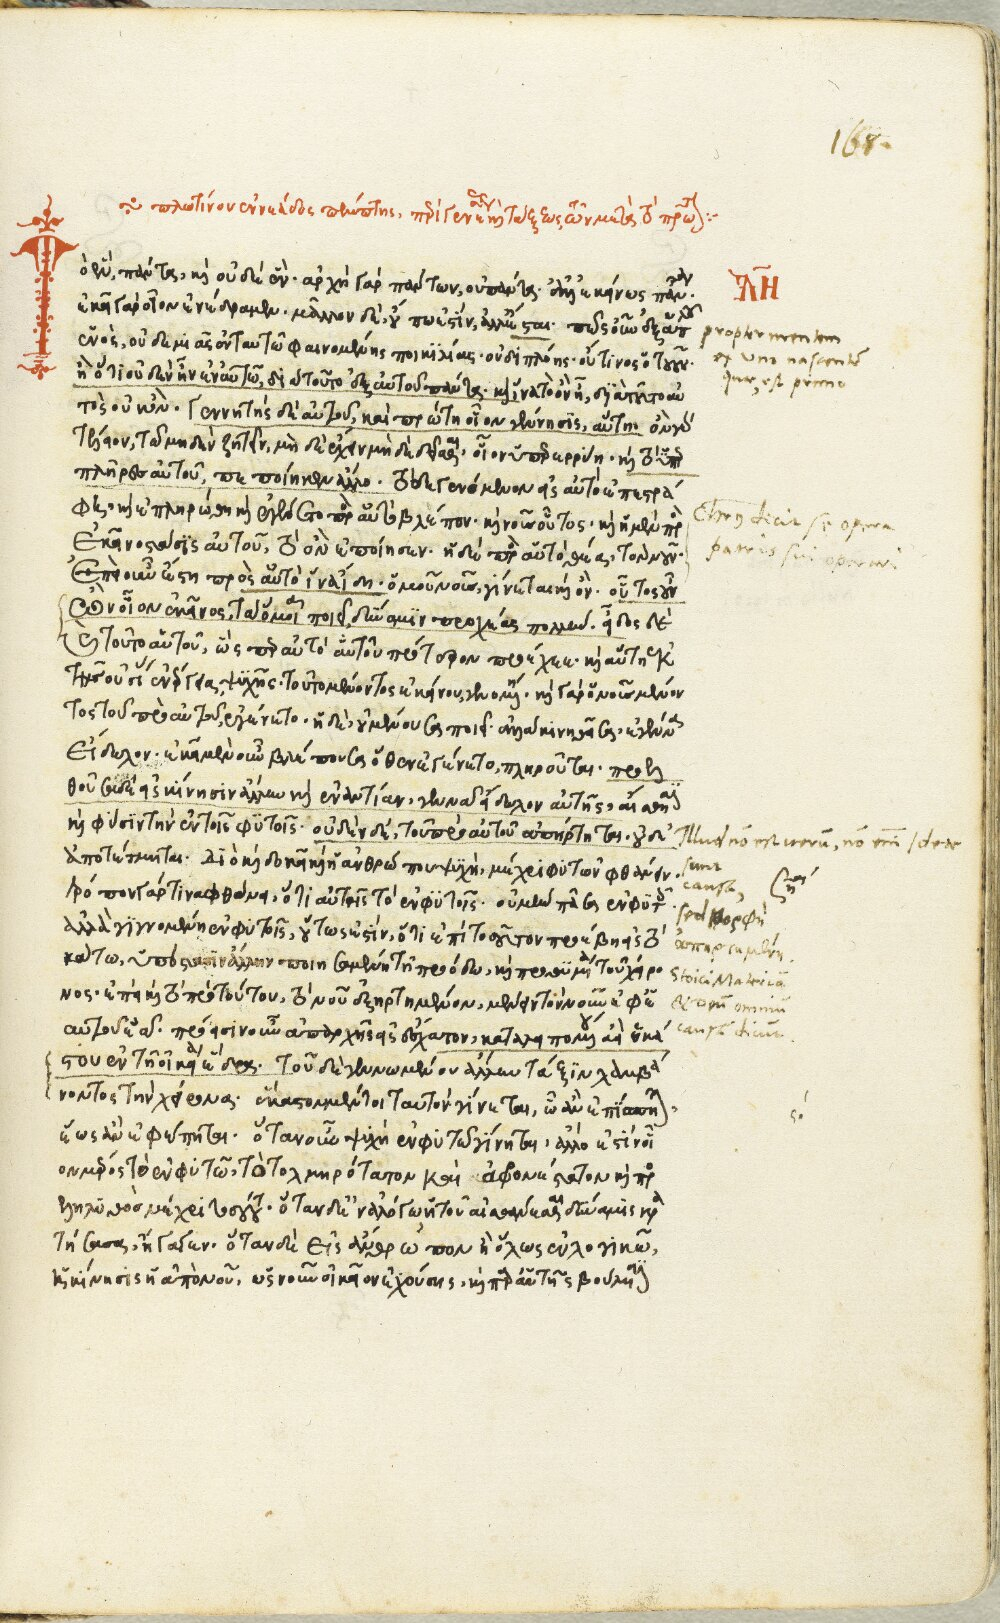 168.
πλωτίνου ἐννεάδος πέμπτης. περὶ γενέσεως καὶ τάξεως τῶν μετὰ τὸ πρῶτον:~
Τὸ ἓν, πάντα, καὶ οὐδὲ ἕν. ἀρχὴ γὰρ πάντων, οὐ πάντα. ἀλλ' ἐκείνως πάντα.
ἐκεῖ γὰρ οἷον ἐνέδραμε. μᾶλλον δὲ, οὔπω ἐστὶν, ἀλλ' ἔσται. πῶς οὖν ἐξ ἁπλοῦ
ἑνὸς, οὐδεμιᾶς ἐν ταυτῶ φαινομένης ποικιλίας. οὐ διπλόης. οὔτινος ὁτουοῦν.
ἢ ὅτι οὐδὲν ἦν ἐν αὐτῶ, διὰ τοῦτο ἐξ αὐτοῦ πάντα. καὶ ἵνα τὸ ὂν ἦ, διὰ τοῦτο αὐ
τὸς οὐκ ὄν. γεννητὴς δὲ αὐτοῦ, καὶ πρώτη οἷον γέννησις, αὕτη. ὂν γὰρ
τέλειον, τῶ μηδὲν ζητεῖν, μὴ δὲ ἔχειν μὴ δὲ δεῖσθαι. οἷον ὑπερερρύη. καὶ τὸ ὑπερ
πλῆρες αὐτοῦ, πεποίηκεν ἄλλο. τὸ δὲ γενόμενον εἰς αὐτὸ ἐπεστρά
φη. καὶ ἐπληρώθη καὶ ἐγένετο πρὸς αὐτὸ βλέπον. καὶ νοῦς οὗτος. καὶ ἡ μὲν πρὸς
ἐκεῖνο στάσις αὐτοῦ, τὸ ὂν ἐποίησεν. ἡ δὲ πρὸς αὐτὸ θέα, τὸν νοῦν.
ἐπεὶ οὖν ἔστη πρὸς αὐτὸ ἵνα ἴδη. ὁμοῦ νοῦς, γίνεται καὶ ὄν. οὗτος οὖν
ὢν οἷον ἐκεῖνος, τὰ ὅμοια ποιεῖ, δύναμιν προχέας πολλήν. εἶδος δὲ
καὶ τοῦτο αὐτοῦ, ὥσπερ αὐτὸ αὐτοῦ πρότερον προέχεε. καὶ αὕτη ἐκ
τῆς οὐσίας ἐνέργεια, ψυχῆς. τοῦτο μένοντος ἐκείνου, γενομένη. καὶ γὰρ ὁ νοῦς μένον
τος τοῦ πρὸ αὐτοῦ, ἐγένετο. ἡ δὲ, οὐ μένουσα ποιεῖ. ἀλλὰ κινηθεῖσα, ἐγέννα
εἴδωλον. ἐκεῖ μὲν οὖν βλέπουσα ὅθεν ἐγένετο, πληροῦται. προελ
θοῦσα δὲ εἰς κίνησιν ἄλλην καὶ ἐναντίαν, γεννᾶ εἴδωλον αὐτῆς, αἴσθησιν
καὶ φύσιν τὴν ἐν τοῖς φυτοῖς. οὐδὲν δὲ, τοῦ πρὸ αὐτοῦ ἀπήρτηται. οὐδ'
ἀποτέτμηται. διὸ καὶ δοκεῖ καὶ ἡ ἀνθρώπου ψυχὴ, μέχρι φυτῶν φθάνειν.
τρόπον γάρ τινα φθάνει, ὅτι αὐτῆς τὸ ἐν φυτοῖς. οὐ μὲν πᾶσα ἐν φυτοῖς.
ἀλλὰ γιγνομένη ἐν φυτοῖς, οὕτως ἐστὶν, ὅτι ἐπὶ τοσοῦτον προέβη εἰς τὸ
κάτω, ὑπόστασιν ἄλλην ποιησαμένη τῆ προόδω, καὶ προθυμία τοῦ χείρο
νος. ἐπεὶ καὶ τὸ πρὸ τούτου, τὸ νοῦ ἐξηρτημένον, μένειν τὸν νοῦν ἐφ' ἑ
αυτοῦ ἐᾶ. πρόεισιν οὖν ἀπ' ἀρχῆς εἰς ἔσχατον, καταλειπομένου ἀεὶ ἑκά
στου ἐν τῆ οἰκεία ἕδρα. τοῦ δὲ γεννωμένου ἄλλην τάξιν λαμβά
νοντος τὴν χείρονα. ἕκαστον μέντοι ταυτὸν γίνεται, ὧ ἂν ἐπίσπηται,
ἕως ἂν ἐφέπηται. ὅταν οὖν ψυχὴ ἐν φυτῶ γίνηται, ἄλλο ἐστὶν οἷ
ον μέρος τὸ ἐν φυτῶ, τὸ τολμηρότατον καὶ ἀφρονέστατον καὶ προ
εληλυθὸς μέχρι τοσούτου. ὅταν δ' ἐν ἀλόγω, ἡ τοῦ αἰσθάνεσθαι δύναμις κρα
τήσασα, ἤγαγεν. ὅταν δὲ εἰς ἄνθρωπον ἢ ὅλως ἐν λογικῶ,
ἡ κίνησις ἢ ἀπὸ νοῦ, ὡς νοῦν οἰκεῖον ἐχούσης, καὶ παρ' αὐτῆς βούλησιν
ΛΗ
propter mentem
ex uno nascentem
quae est primo
Etiam dicit se opera
patris sui operari
Illud non est verum, non enim ideae
sunt
causae,
μορφὴ
ἐσπαρμένη.
Stoici Materiam
et deum omnium
causas dicunt.